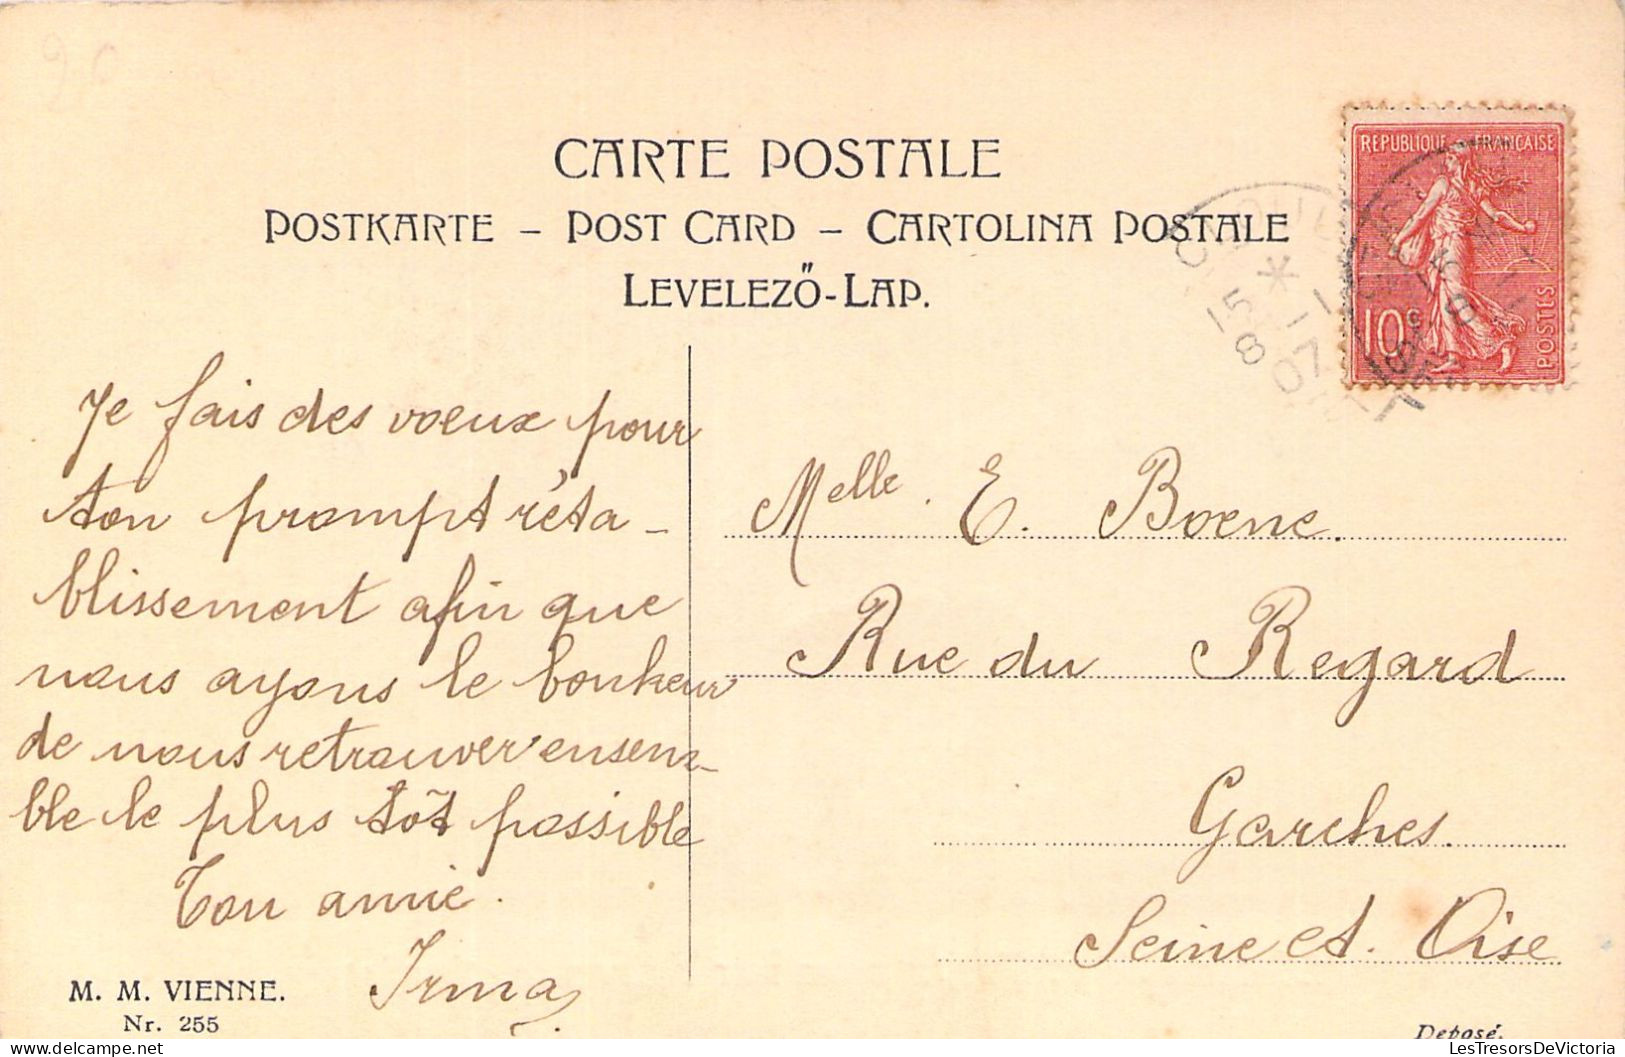 CARTE POSTALE
POSTKARTE – POST CARD – CARTOLINA POSTALE
LEVELEZŐ-LAP.
REPUBLIQUE FRANÇAISE
10c
POSTES
15
8 -1
07
Je fais des voeux pour
ton prompt réta-
blissement afin que
nous ayons le bonheur
de nous retrouver ensem-
ble le plus tôt possible
Ton amie.
Irma
Melle. E. Boene.
Rue du Regard
Garches.
Seine et. Oise
M. M. VIENNE.
Nr. 255
Deposé.
LesTresorsDeVictoria